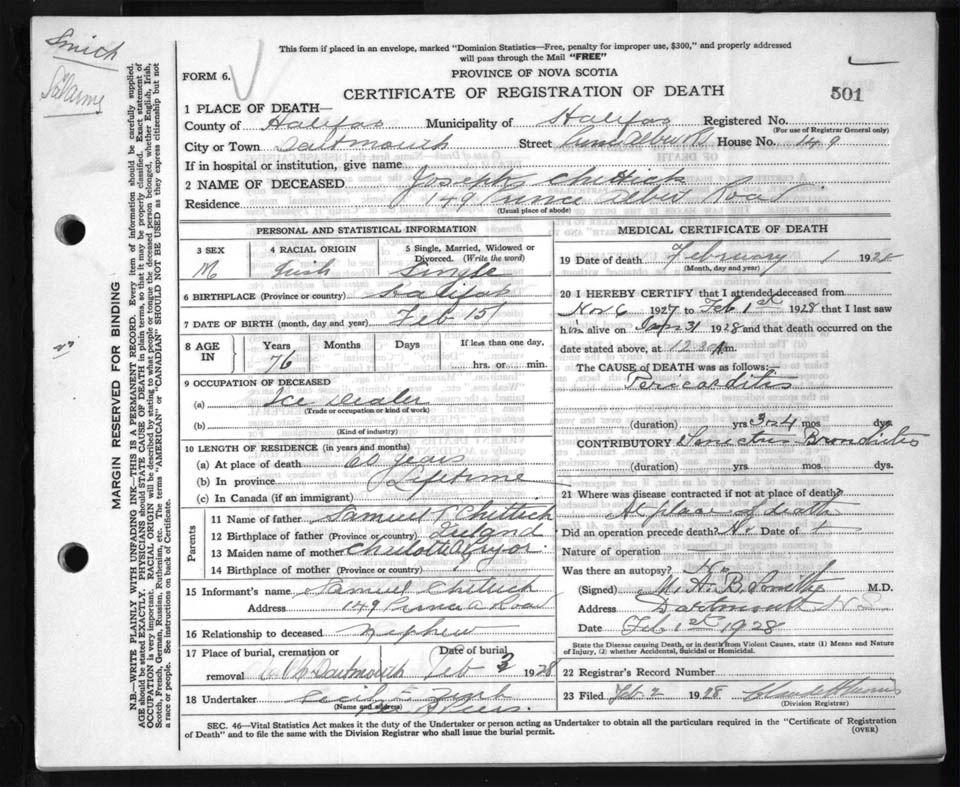 Smith
This form if placed in an envelope, marked "Dominion Statistics—Free, penalty for improper use, $300," and properly addressed
will pass through the Mail "FREE"
FORM 6.
PROVINCE OF NOVA SCOTIA
CERTIFICATE OF REGISTRATION OF DEATH
501
1 PLACE OF DEATH—
County of Halifax Municipality of Halifax Registered No.
(For use of Registrar General only)
City or Town Dartmouth Street House No. 149
If in hospital or institution, give name
2 NAME OF DECEASED Joseph Chittick
Residence 149 Prince Albert Road
(Usual place of abode)
PERSONAL AND STATISTICAL INFORMATION
3 SEX 4 RACIAL ORIGIN 5 Single, Married, Widowed or
Divorced. (Write the word)
M Irish Single
6 BIRTHPLACE (Province or country) Halifax
7 DATE OF BIRTH (month, day and year) Feb 151
8 AGE IN Years Months Days If less than one day,
76 hrs. or min.
9 OCCUPATION OF DECEASED
(a) Ice Dealer
(Trade or occupation or kind of work)
(b)
(Kind of industry)
10 LENGTH OF RESIDENCE (in years and months)
(a) At place of death 60 years
(b) In province Lifetime
(c) In Canada (if an immigrant)
Parents
11 Name of father Samuel Chittick
12 Birthplace of father (Province or country)
13 Maiden name of mother Pryor
14 Birthplace of mother (Province or country)
15 Informant's name Samuel Chittick
Address 149 Prince A Road
16 Relationship to deceased nephew
17 Place of burial, cremation or Date of burial
removal Dartmouth Feb 3 1928
18 Undertaker Cecil E Zink
(Name and address)
MEDICAL CERTIFICATE OF DEATH
19 Date of death February 1 1928
(Month, day and year)
20 I HEREBY CERTIFY that I attended deceased from
Nov 6 1927 to Feb 1st 1928 that I last saw
him alive on Jan 31 1928 and that death occurred on the
date stated above, at 12.30 Am.
The CAUSE of DEATH was as follows:—
Pericarditis
(duration) yrs 3 or 4 mos dys.
CONTRIBUTORY Bronchitis
(duration) yrs mos dys.
21 Where was disease contracted if not at place of death?
At place of death
Did an operation precede death? No Date of
Nature of operation
Was there an autopsy? No
(Signed) M. A. B. Smith M.D.
Address Dartmouth N S
Date Feb 1st 1928
State the Disease causing Death, or in death from Violent Causes, state (1) Means and Nature
of Injury, (2) whether Accidental, Suicidal or Homicidal.
22 Registrar's Record Number
23 Filed Feb 2 1928
(Division Registrar)
SEC. 46—Vital Statistics Act makes it the duty of the Undertaker or person acting as Undertaker to obtain all the particulars required in the "Certificate of Registration
of Death" and to file the same with the Division Registrar who shall issue the burial permit.
(OVER)
MARGIN RESERVED FOR BINDING
N.B.—WRITE PLAINLY WITH UNFADING INK—THIS IS A PERMANENT RECORD. Every item of information should be carefully supplied.
AGE should be stated EXACTLY. PHYSICIANS should STATE CAUSE OF DEATH in plain terms, so that it may be properly classified. Exact statement of
OCCUPATION is very important. RACIAL ORIGIN will be described by stating to what people or tongue the deceased person belonged, whether English, Irish,
Scotch, French, German, Russian, Ruthenian, etc. The terms "AMERICAN" or "CANADIAN" SHOULD NOT BE USED as they express citizenship but not
a race or people. See instructions on back of Certificate.